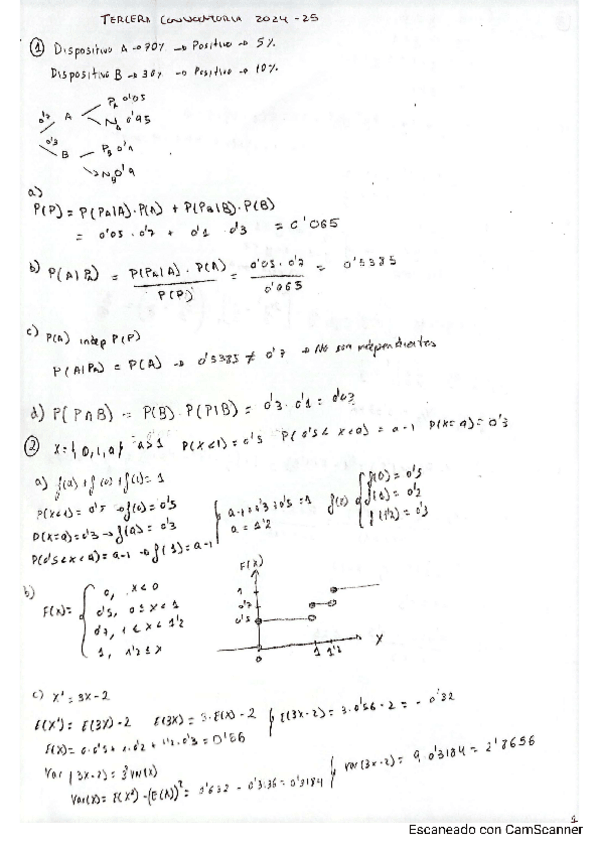 TERCERA CONVOCATORIA 2024-25
① Dispositivo A → 70% → Positivo → 5%
Dispositivo B → 30% → Positivo → 10%
0'7 A P_A 0'05
N_A 0'95
0'3 B P_B 0'1
N_B 0'9
a)
P(P) = P(P_A|A)·P(A) + P(P_B|B)·P(B)
= 0'05 · 0'7 + 0'1 · 0'3 = 0'065
b) P(A|P_A) = P(P_A|A) · P(A) / P(P) = 0'05 · 0'7 / 0'065 = 0'5385
c) P(A) indep P(P)
P(A|P_A) = P(A) → 0'5385 ≠ 0'7 → No son independientes
d) P(P∩B) = P(B) · P(P|B) = 0'3 · 0'1 = 0'03
② X = {0,1,a} a>1 P(X<1) = 0'5 P(0'5<X<a) = a-1 P(X=a) = 0'3
a) f(a) + f(0) + f(1) = 1
P(X<1) = 0'5 → f(0) = 0'5
P(X=a) = 0'3 → f(a) = 0'3
P(0'5<X<a) = a-1 → f(1) = a-1
a-1+0'3+0'5 = 1
a = 1'2
f(x) f(0) = 0'5
f(1) = 0'2
f(1'2) = 0'3
b)
F(X) = 0, X<0
0'5, 0≤X<1
0'7, 1≤X<1'2
1, 1'2≤X
F(X)
1
0'7
0'5
0 1 1'2 X
c) X' = 3X-2
E(X') = E(3X)-2 E(3X) = 3·E(X)-2 E(3X-2) = 3·0'56-2 = -0'32
E(X) = 0·0'5 + 1·0'2 + 1'2·0'3 = 0'56
Var(3X-2) = 3²Var(X)
Var(X) = E(X²) - (E(X))² = 0'632 - 0'3136 = 0'3184 Var(3X-2) = 9·0'3184 = 2'8656
1
Escaneado con CamScanner